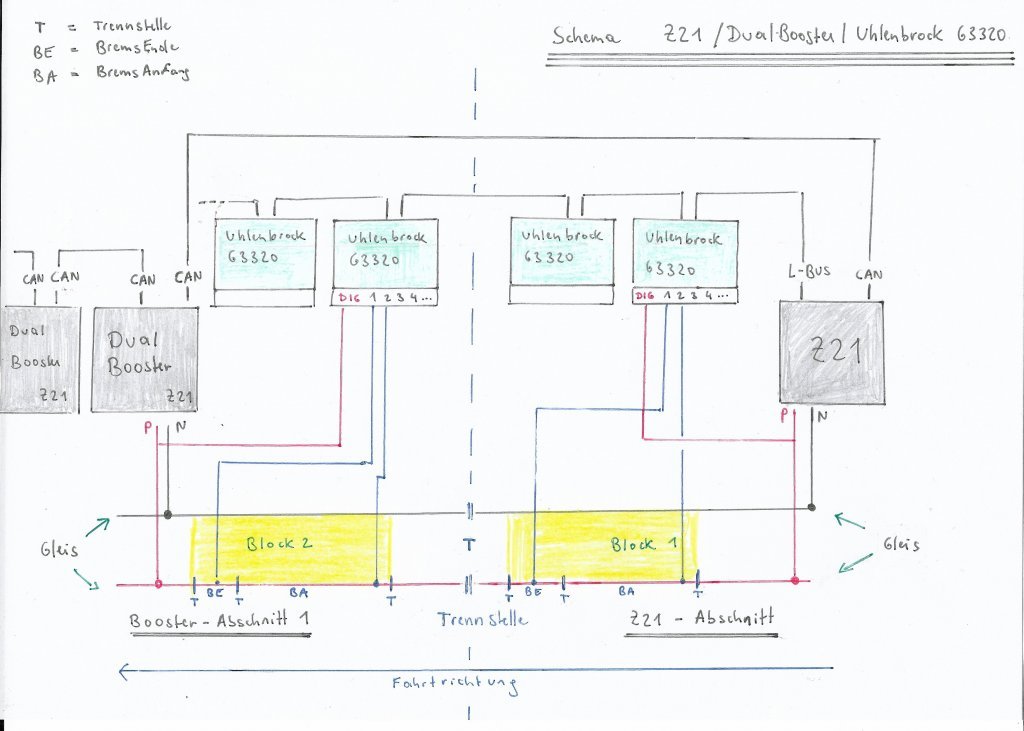 T = Trennstelle
BE = BremsEnde
BA = BremsAnfang
Schema Z21 / Dual-Booster / Uhlenbrock 63320
Uhlenbrock
63320
Uhlenbrock
63320
DIG 1 2 3 4 ...
Uhlenbrock
63320
Uhlenbrock
63320
DIG 1 2 3 4 ...
CAN CAN CAN CAN
L-BUS CAN
Dual
Booster
Z21
Dual
Booster
Z21
Z21
P N
P N
Gleis
Block 2
T
Block 1
Gleis
T BE T BA T
T BE T BA T
Booster-Abschnitt 1
Trennstelle
Z21 - Abschnitt
Fahrtrichtung